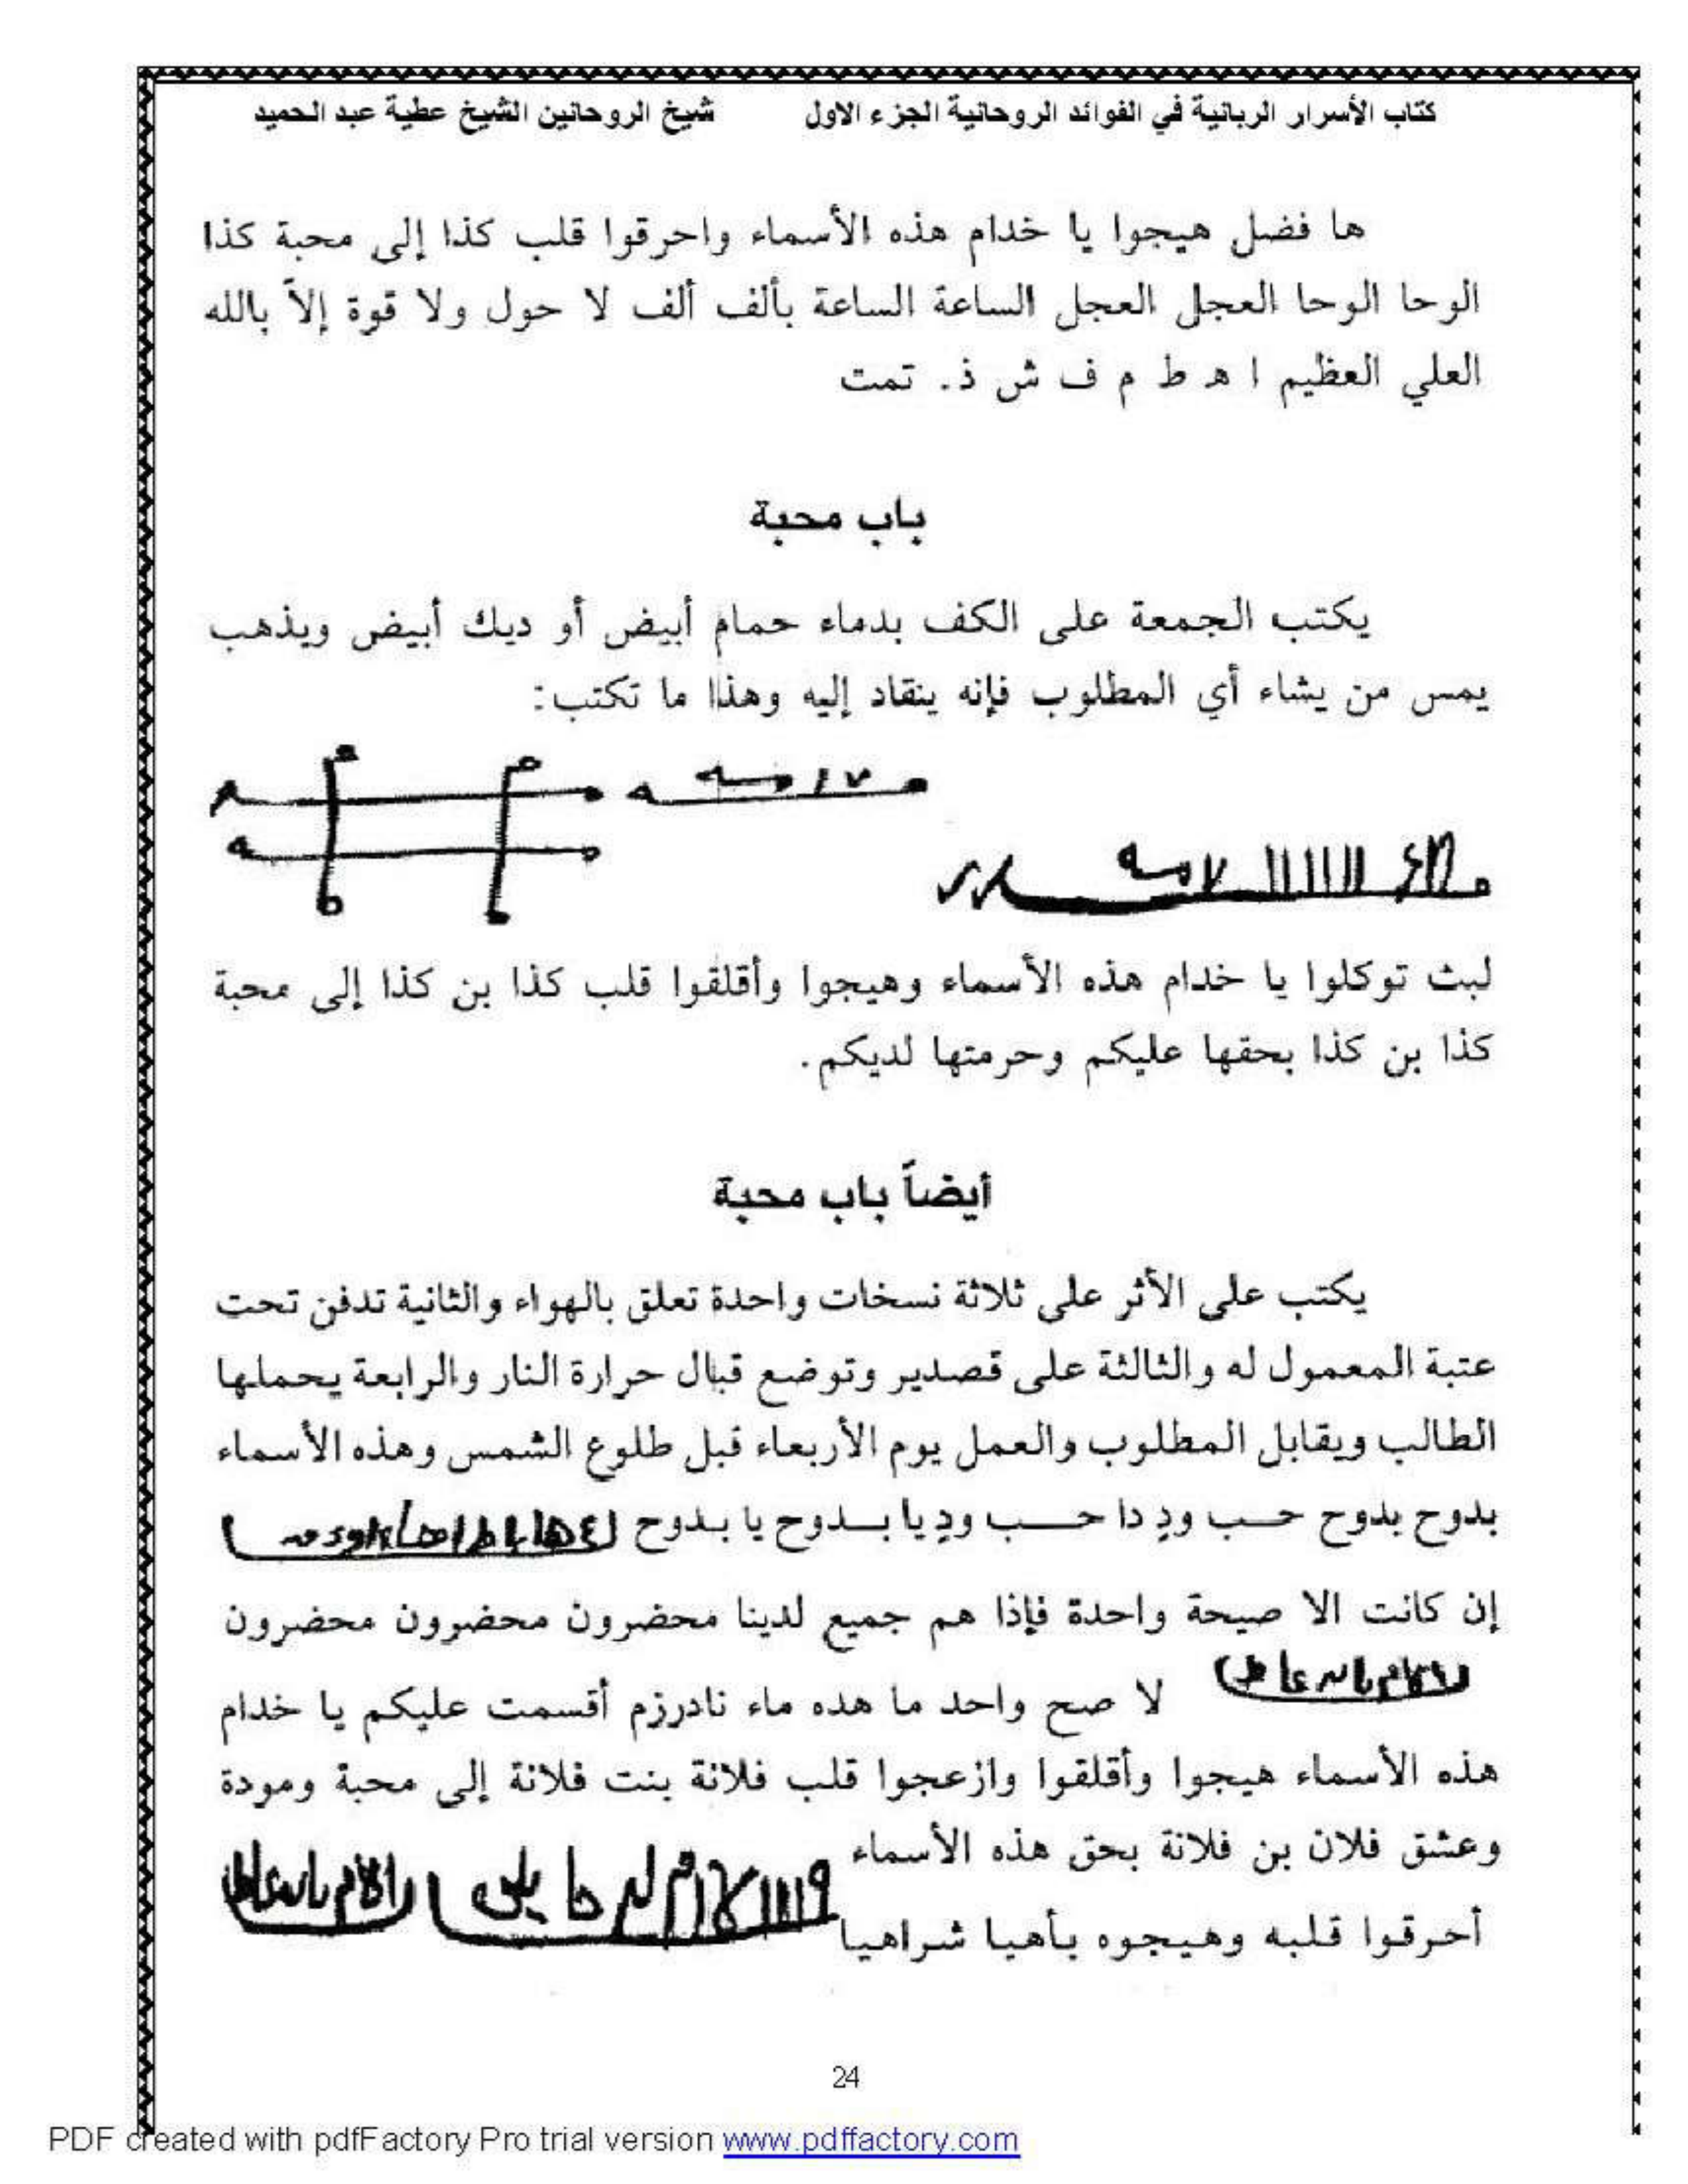 كتاب الأسرار الربانية في الفوائد الروحانية الجزء الاول شيخ الروحانين الشيخ عطية عبد الحميد
ها فضل هيجوا يا خدام هذه الأسماء واحرقوا قلب كذا إلى محبة كذا
الوحا الوحا العجل العجل الساعة الساعة بألف ألف لا حول ولا قوة إلاّ بالله
العلي العظيم ا هـ ط م ف ش ذ. تمت
باب محبة
يكتب الجمعة على الكف بدماء حمام أبيض أو ديك أبيض ويذهب
يمس من يشاء أي المطلوب فإنه ينقاد إليه وهذا ما تكتب:
لبث توكلوا يا خدام هذه الأسماء وهيجوا وأقلقوا قلب كذا بن كذا إلى محبة
كذا بن كذا بحقها عليكم وحرمتها لديكم.
أيضاً باب محبة
يكتب على الأثر على ثلاثة نسخات واحدة تعلق بالهواء والثانية تدفن تحت
عتبة المعمول له والثالثة على قصدير وتوضع قبال حرارة النار والرابعة يحملها
الطالب ويقابل المطلوب والعمل يوم الأربعاء قبل طلوع الشمس وهذه الأسماء
بدوح بدوح حب ودِ دا حب ودِ يا بدوح يا بدوح
إن كانت الا صيحة واحدة فإذا هم جميع لدينا محضرون محضرون محضرون
لا صح واحد ما هده ماء نادرزم أقسمت عليكم يا خدام
هذه الأسماء هيجوا وأقلقوا وازعجوا قلب فلانة بنت فلانة إلى محبة ومودة
وعشق فلان بن فلانة بحق هذه الأسماء
أحرقوا قلبه وهيجوه بأهيا شراهيا
24
PDF created with pdfFactory Pro trial version www.pdffactory.com